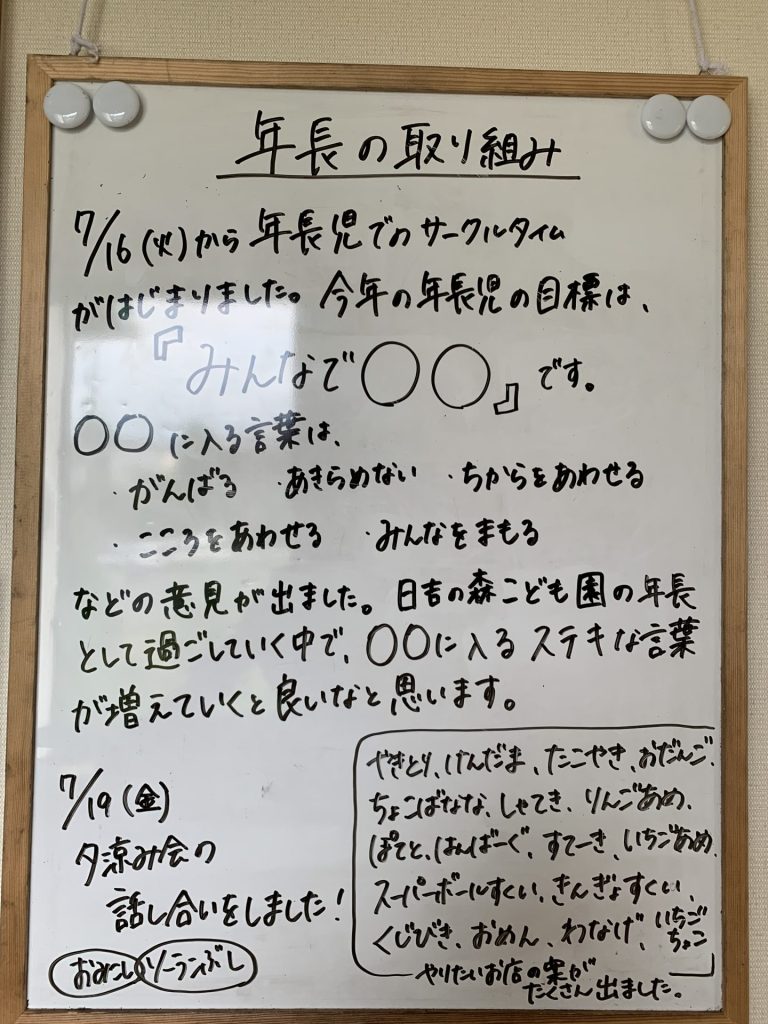 年長の取り組み
7/16(火)から 年長児でのサークルタイム
がはじまりました。今年の年長児の目標は、
『みんなで〇〇』です。
〇〇に入る言葉は、
・がんばる ・あきらめない ・ちからをあわせる
・こころをあわせる ・みんなをまもる
などの意見が出ました。日吉の森こども園の年長
として過ごしていく中で、〇〇に入るステキな言葉
が増えていくと良いなと思います。
7/19(金)
夕涼み会の
話し合いをしました!
おみこし ソーランぶし
やきとり、けんだま、たこやき、おだんご、
ちょこばなな、しゃてき、りんごあめ、
ぽてと、はんばーぐ、すてーき、いちごあめ、
スーパーボールすくい、きんぎょすくい、
くじびき、おめん、わなげ、いちごちょこ
やりたいお店の案が
たくさん出ました。